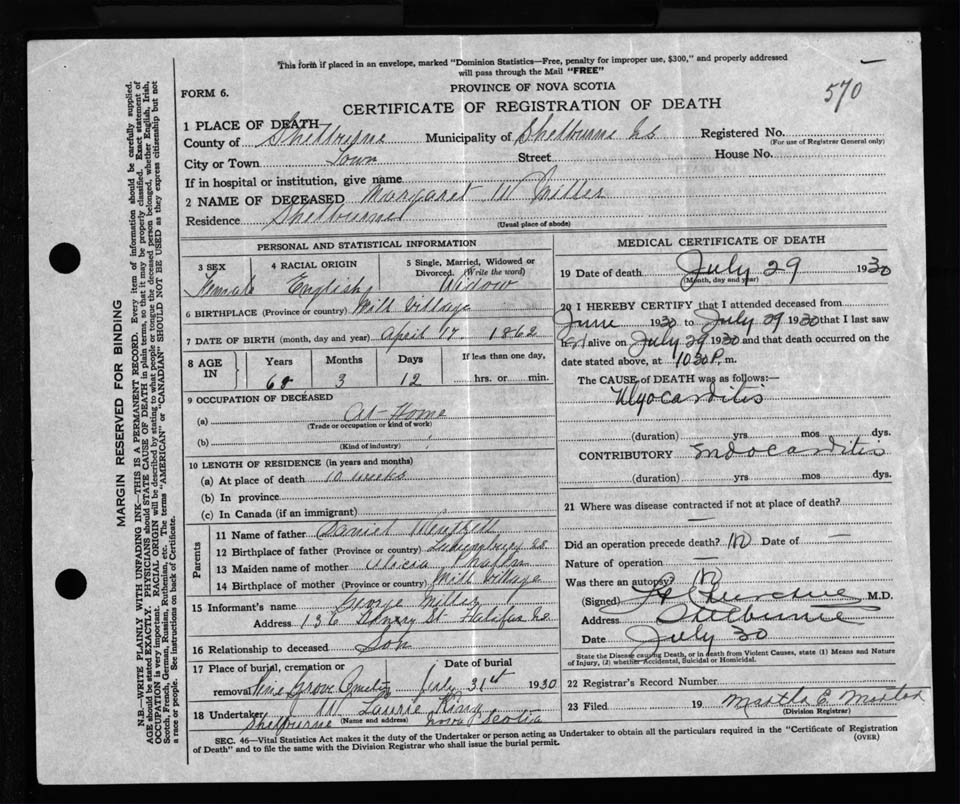 This form if placed in an envelope, marked "Dominion Statistics—Free, penalty for improper use, $300," and properly addressed
will pass through the Mail "FREE"
FORM 6.
PROVINCE OF NOVA SCOTIA
570
CERTIFICATE OF REGISTRATION OF DEATH
1 PLACE OF DEATH
County of Shelburne Municipality of Shelburne Registered No.
(For use of Registrar General only)
City or Town Town Street House No.
If in hospital or institution, give name
2 NAME OF DECEASED Margaret M Miller
Residence Shelburne
(Usual place of abode)
PERSONAL AND STATISTICAL INFORMATION
3 SEX 4 RACIAL ORIGIN 5 Single, Married, Widowed or
Divorced. (Write the word)
Female English Widow
6 BIRTHPLACE (Province or country) Mill Village
7 DATE OF BIRTH (month, day and year) April 17 1862
8 AGE IN Years Months Days If less than one day,
68 3 12 hrs. or min.
9 OCCUPATION OF DECEASED
(a) At Home
(Trade or occupation or kind of work)
(b)
(Kind of industry)
10 LENGTH OF RESIDENCE (in years and months)
(a) At place of death 10 weeks
(b) In province
(c) In Canada (if an immigrant)
Parents
11 Name of father Daniel
12 Birthplace of father (Province or country) Lunenburg Co.
13 Maiden name of mother
14 Birthplace of mother (Province or country) Mill Village
15 Informant's name George Miller
Address 136 St Halifax
16 Relationship to deceased Son
17 Place of burial, cremation or Date of burial
removal Pine Grove Cemetery July 31st 1930
18 Undertaker W. Laurie King
(Name and address)
Shelburne Nova Scotia
MEDICAL CERTIFICATE OF DEATH
19 Date of death July 29 1930
(Month, day and year)
20 I HEREBY CERTIFY that I attended deceased from
June 1930 to July 29 1930 that I last saw
her alive on July 29 1930 and that death occurred on the
date stated above, at 10 30 P. m.
The CAUSE of DEATH was as follows:—
Myocarditis
(duration) yrs mos dys.
CONTRIBUTORY Endocarditis
(duration) yrs mos dys.
21 Where was disease contracted if not at place of death?
—
Did an operation precede death? No Date of —
Nature of operation —
Was there an autopsy? No
(Signed) M.D.
Address Shelburne
Date July 30
State the Disease causing Death, or in death from Violent Causes, state (1) Means and Nature
of Injury, (2) whether Accidental, Suicidal or Homicidal.
22 Registrar's Record Number
23 Filed 19 Martha E
(Division Registrar)
SEC. 46—Vital Statistics Act makes it the duty of the Undertaker or person acting as Undertaker to obtain all the particulars required in the "Certificate of Registration
of Death" and to file the same with the Division Registrar who shall issue the burial permit. (OVER)
MARGIN RESERVED FOR BINDING
N.B.—WRITE PLAINLY WITH UNFADING INK—THIS IS A PERMANENT RECORD. Every item of information should be carefully supplied.
AGE should be stated EXACTLY. PHYSICIANS should STATE CAUSE OF DEATH in plain terms, so that it may be properly classified. Exact statement of
OCCUPATION is very important. RACIAL ORIGIN will be described by stating to what people or tongue the deceased person belonged, whether English, Irish,
Scotch, French, German, Russian, Ruthenian, etc. The terms "AMERICAN" or "CANADIAN" SHOULD NOT BE USED as they express citizenship but not
a race or people. See instructions on back of Certificate.